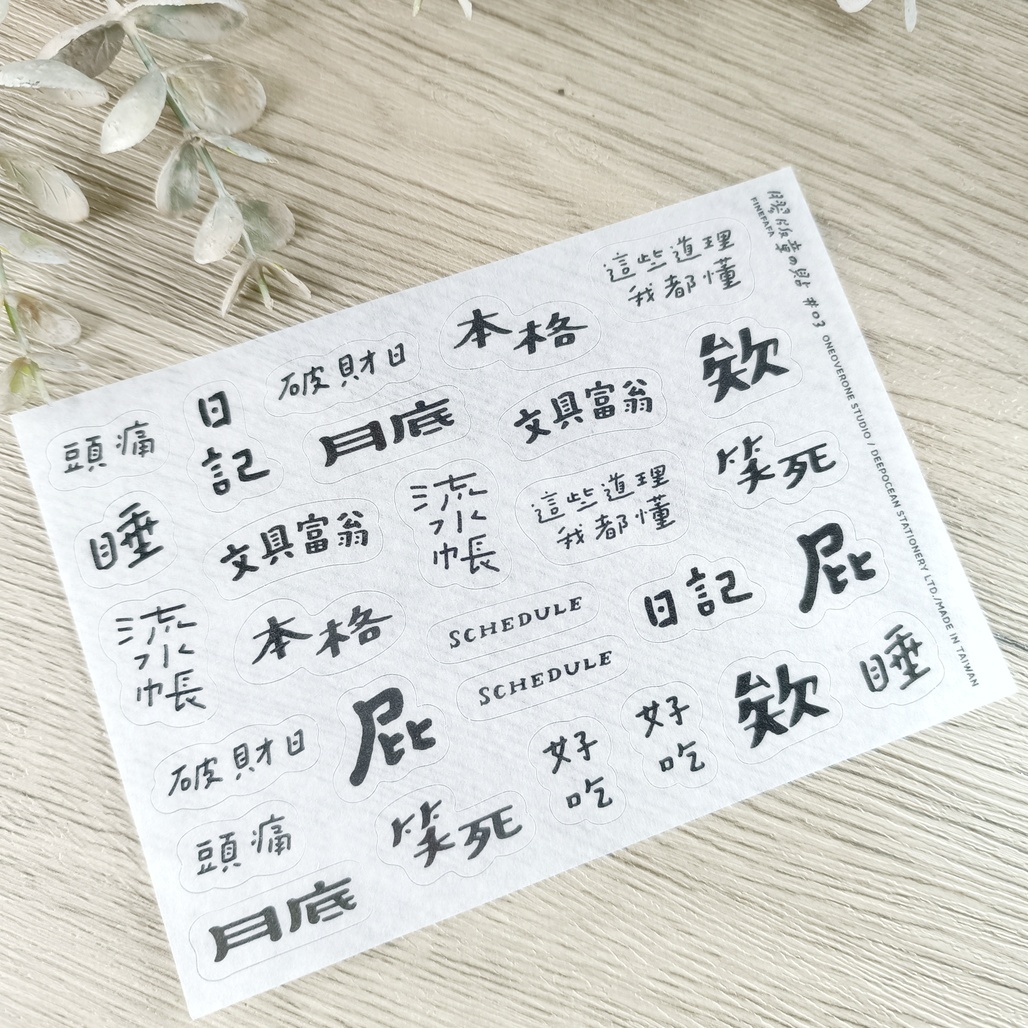 這些道理
我都懂
本格
破財日
日
記
頭痛
月底
文具富翁
欸
笑死
這些道理
我都懂
流
水
帳
文具富翁
睡
屁
日記
SCHEDULE
本格
流
水
帳
SCHEDULE
睡
欸
好
吃
好
吃
屁
破財日
笑死
頭痛
月底
膠版章の貼 #03
FINEFAFA
ONEOVERONE STUDIO / DEEPOCEAN STATIONERY LTD./MADE IN TAIWAN